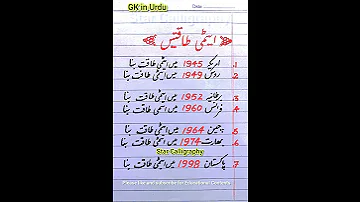 GK in Urdu
Star Calligraphy
ایٹمی طاقتیں
Date
1. امریکہ 1945 میں ایٹمی طاقت بنا
2. روس 1949 میں ایٹمی طاقت بنا
3. برطانیہ 1952 میں ایٹمی طاقت بنا
4. فرانس 1960 میں ایٹمی طاقت بنا
5. چین 1964 میں ایٹمی طاقت بنا
6. بھارت 1974 میں ایٹمی طاقت بنا
Star Calligraphy
7. پاکستان 1998 میں ایٹمی طاقت بنا
Please like and subscribe for Educational Content